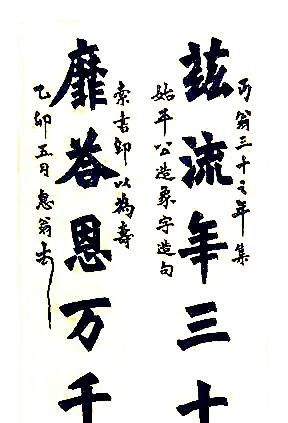 兹流年三十
丙翁三十之年集
始平公造象字造句
靡答恩万千
索書即以為壽
乙卯五月息翁